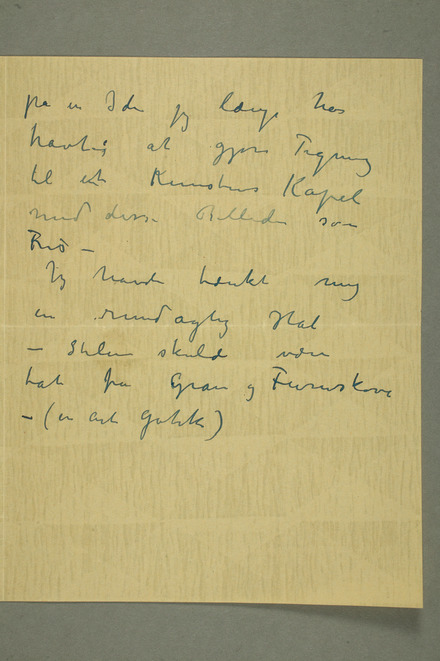 på en Ide jeg længe har
havt – at gjøre Tegning
til et Kunstens Kapel
med disse Billeder som
Fris –
Jeg havde tænkt mig
en rundagtig Hal
– Stilen skulde være
tat fra Gran og Furuskove
– (en art gotik)